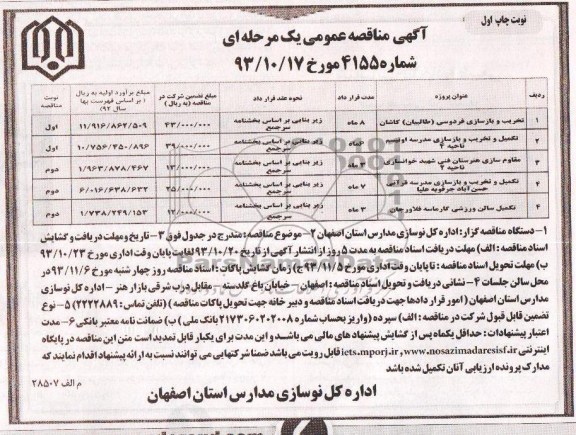 نوبت چاپ اول
آگهی مناقصه عمومی یک مرحله ای
شماره ۴۱۵۵ مورخ ۹۳/۱۰/۱۷
ردیف عنوان پروژه مدت قرار داد نحوه عقد قرار داد مبلغ تضمین شرکت در مناقصه (به ریال) مبلغ برآورد اولیه به ریال (بر اساس فهرست بها سال ۹۲) نوبت مناقصه
۱ تخریب و بازسازی فردوسی (طالبیان) کاشان ۸ ماه زیر بنایی بر اساس بخشنامه سرجمع ۴۳/۰۰۰/۰۰۰ ۱۱/۹۱۶/۸۶۲/۵۰۹ اول
۲ تکمیل و تخریب و بازسازی مدرسه ناحیه ۴ زیر بنایی بر اساس بخشنامه سرجمع ۳۹/۰۰۰/۰۰۰ ۱۰/۷۵۶/۴۵۰/۸۹۶ اول
۳ مقاوم سازی هنرستان فنی شهید خوانساری ناحیه ۳ ۳ ماه زیر بنایی بر اساس بخشنامه سرجمع ۱۳/۰۰۰/۰۰۰ ۱/۹۶۳/۸۷۸/۴۶۷ دوم
تکمیل و تخریب و بازسازی مدرسه قرآنی حسن آباد جرقویه علیا ۷ ماه زیر بنایی بر اساس بخشنامه سرجمع ۲۵/۰۰۰/۰۰۰ ۶/۰۱۶/۶۳۸/۶۳۲ دوم
۴ تکمیل سالن ورزشی کارماسه فلاورجان ۷ ماه زیر بنایی بر اساس بخشنامه سرجمع ۱۲/۰۰۰/۰۰۰ ۱/۷۳۸/۲۴۹/۱۵۳ دوم
۱- دستگاه مناقصه گزار: اداره کل نوسازی مدارس استان اصفهان ۲- موضوع مناقصه: مندرج در جدول فوق ۳- تاریخ ومهلت دریافت و گشایش
اسناد مناقصه: الف) مهلت دریافت اسناد مناقصه به مدت ۵ روز از انتشار آگهی از تاریخ ۹۳/۱۰/۲۰ لغایت پایان وقت اداری مورخ ۹۳/۱۰/۲۳
ب) مهلت تحویل اسناد مناقصه: تا پایان وقت اداری مورخ ۹۳/۱۱/۵ ج) زمان گشایش پاکات: اسناد مناقصه روز چهار شنبه مورخ ۹۳/۱۱/۶ در
محل سالن جلسات ۴- نشانی دریافت و تحویل اسناد مناقصه: اصفهان - خیابان باغ گلدسته - مقابل درب شرقی بازار هنر - اداره کل نوسازی
مدارس استان اصفهان (امور قرار دادها جهت دریافت اسناد مناقصه و دبیر خانه جهت تحویل پاکات مناقصه) (تلفن تماس: ۲۲۲۲۸۸۹) ۵- نوع
تضمین قابل قبول شرکت در مناقصه: الف) سپرده (واریز بحساب شماره ۲۱۷۳۰۶۰۲۰۲۰۰۸ بانک ملی) ب) ضمانت نامه معتبر بانکی ۶- مدت
اعتبار پیشنهادات: حداقل یکماه پس از گشایش پیشنهاد های مالی می باشد و این مدت برای یکبار قابل تمدید است متن این مناقصه در پایگاه
اینترنتی iets.mporj.ir, www.nosazimadaresisf.ir قابل رویت می باشد ضمنا شرکتهایی می توانند نسبت به ارائه پیشنهاد اقدام نمایند که
مدارک پرونده ارزیابی آنان تکمیل شده باشد
م الف ۲۸۵۰۷
اداره کل نوسازی مدارس استان اصفهان